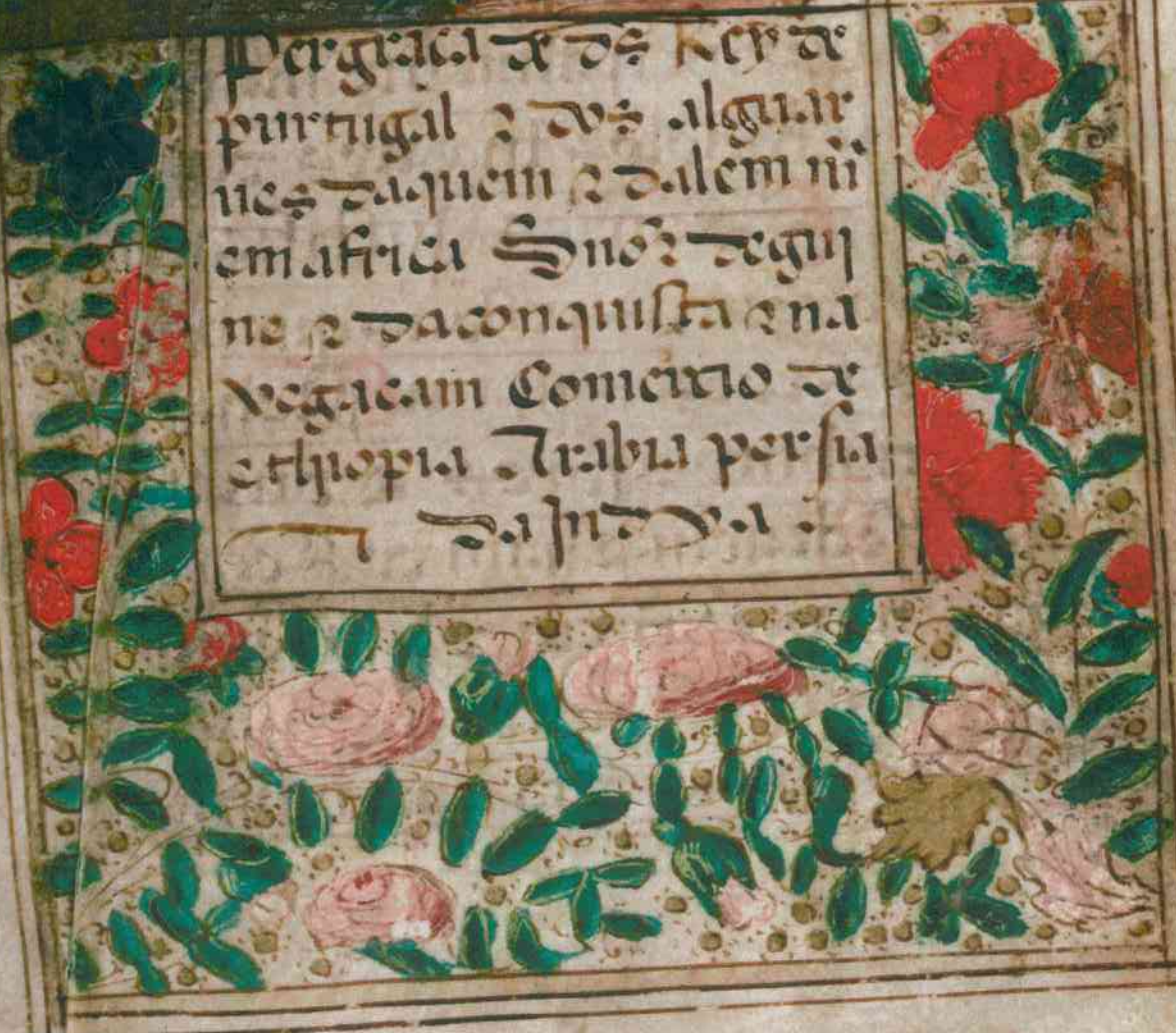 Per graca de ds Rey de
purtugal e dos alguar
ues daquem e dalem m
em africa Snor degui
ne e da conquista e na
vegacam Comercio de
ethiopia Arabia persia
da Indya